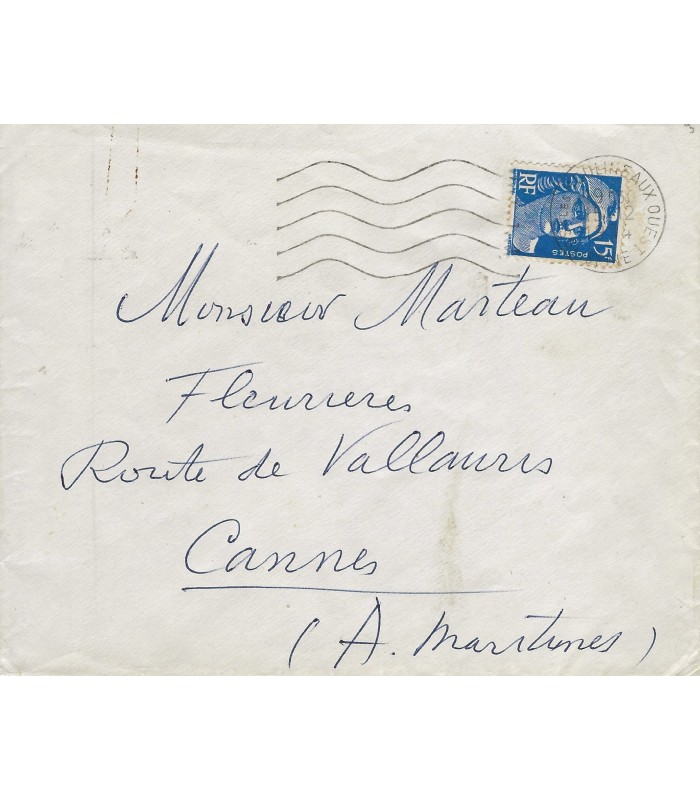 RF
POSTES
15F
EAUX OUEST
Monsieur Marteau
Fleurieres
Route de Vallauris
Cannes
(A. Maritimes)